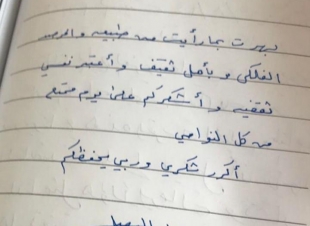 بهرت بما رأيت من طبيعه والمرصد
الفلكي وبأهل ثقيف وأعتبر نفسي
ثقفيه وأشكركم على يوم ممتع
من كل النواحي
أكرر شكري وربي يحفظكم